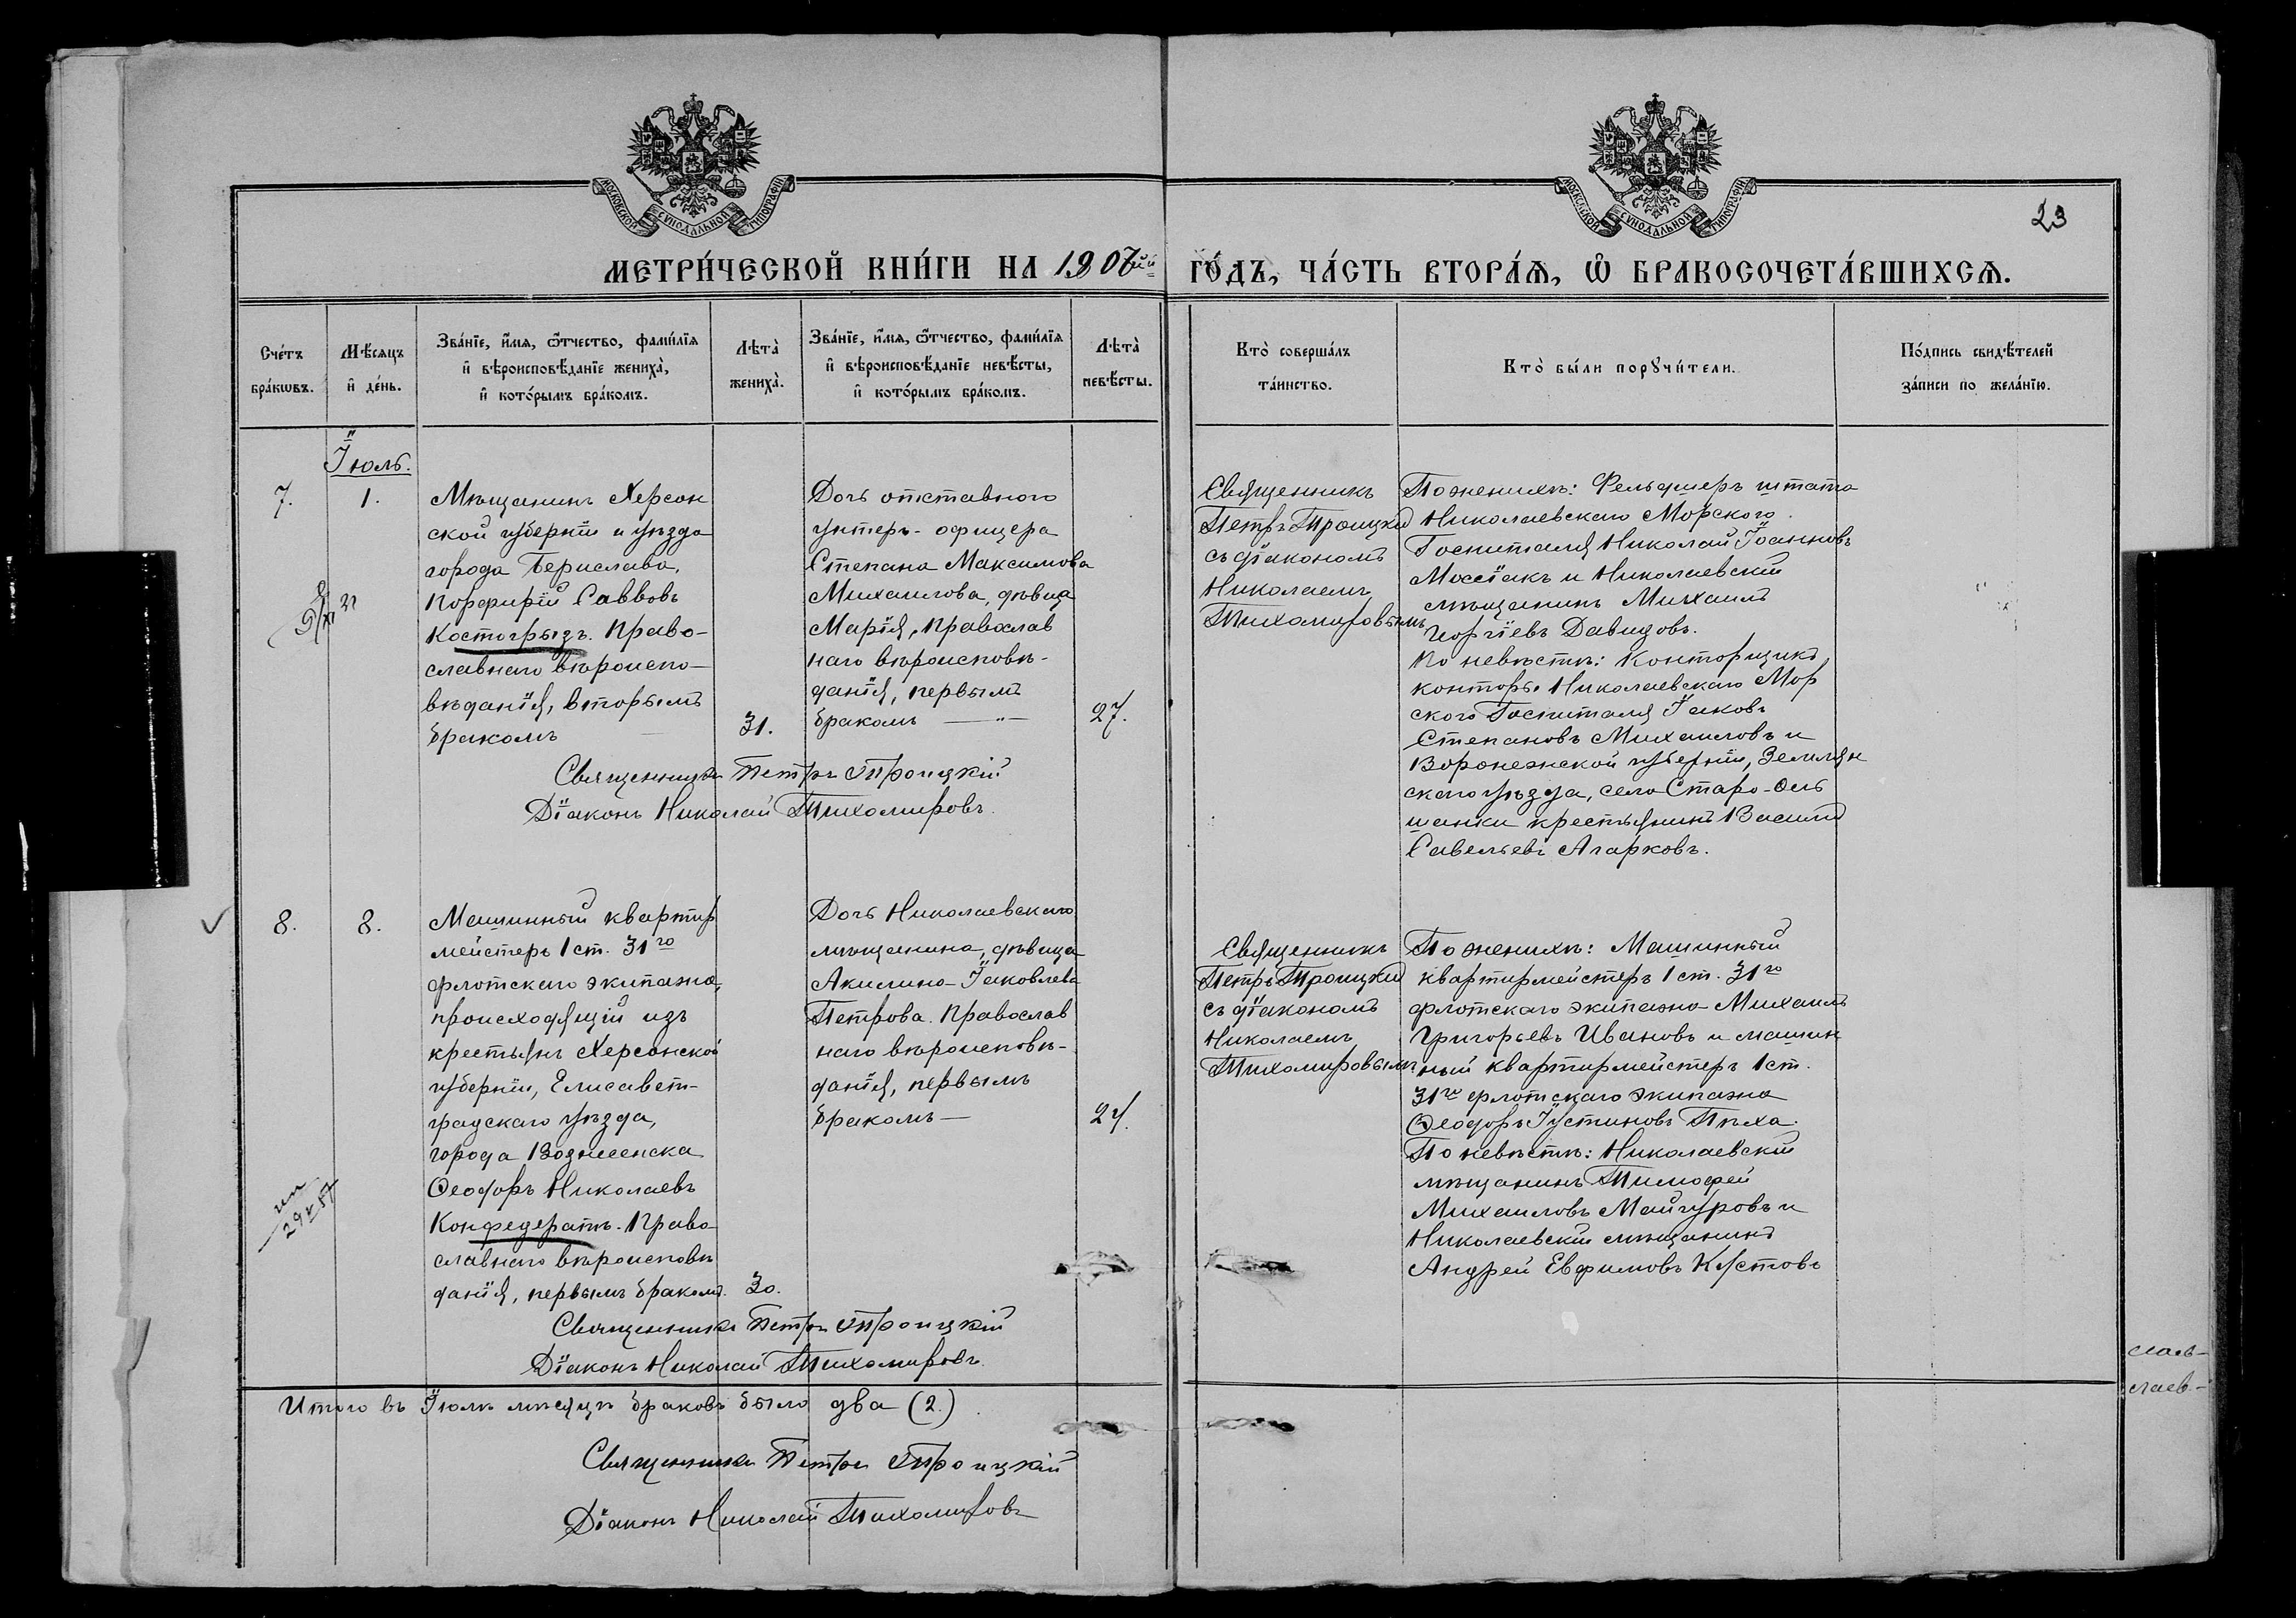 МОСКОВСКОЙ СѴНОДАЛЬНОЙ ТИПОГРАФІИ
МОСКОВСКОЙ СѴНОДАЛЬНОЙ ТИПОГРАФІИ
23
МЕТРИ́ЧЕСКОЙ КНИ́ГИ НА 1907ый
ГО́ДЪ, ЧА́СТЬ ВТОРА́Ѧ, Ѡ БРАКОСОЧЕТА́ВШИХСѦ.
Сче́тъ бра́кѡвъ.
Мѣ́сяцъ и де́нь.
Зва́нїе, и́мѧ, ѻ҆́тчество, фами́лїѧ и вѣроисповѣ́данїе жениха̀, и кото́рымъ бра́комъ.
Лѣта̀ жениха̀.
Зва́нїе, и́мѧ, ѻ҆́тчество, фами́лїѧ и вѣроисповѣ́данїе невѣ́сты, и кото́рымъ бра́комъ.
Лѣта̀ невѣ́сты.
Кто̀ соверша́лъ та́инство.
Кто̀ бы́ли порꙋчи́тели.
По́дпись свидѣ́телей за́писи по жела́нїю.
Іюль.
7.
1.
Мѣщанинъ Херсон
ской губерніи и уѣзда
города Берислава,
Порфирій Саввовъ
Костогрызъ. Право-
славнаго вѣроиспо-
вѣданія, вторымъ
бракомъ
31.
Дочь отставного
унтеръ-офицера
Степана Максимова
Михаилова, дѣвица
Марія, православ
наго вѣроисповѣ-
данія, первымъ
бракомъ — " —
27.
Священникъ
Петръ Троицкій
съ діакономъ
Николаемъ
Тихомировымъ
По женихѣ: Фельдшеръ штата
Николаевскаго Морского
Госпиталя Николай Іоанновъ
Моссіакъ и Николаевскій
мѣщанинъ Михаилъ
Георгіевъ Давидовъ.
По невѣстѣ: Конторщикъ
конторы Николаевскаго Мор
ского Госпиталя Іаковъ
Степановъ Михаиловъ и
Воронежской губерніи, Землян
скаго уѣзда, села Старо-Оль
шанки крестьянинъ Василій
Савельевъ Агарковъ.
Священникъ Петръ Троицкій
Діаконъ Николай Тихомировъ.
8.
8.
Машинный квартир
мейстеръ 1 ст. 31го
флотскаго экипажа,
происходящій изъ
крестьянъ Херсонской
губерніи, Елисавет-
градскаго уѣзда,
города Вознесенска
Ѳеодоръ Николаевъ
Конфедератъ. Право
славнаго вѣроисповѣ
данія, первымъ бракомъ.
30.
Дочь Николаевскаго
мѣщанина, дѣвица
Акилина Іаковлева
Петрова. Православ
наго вѣроисповѣ-
данія, первымъ
бракомъ —
24.
Священникъ
Петръ Троицкій
съ діакономъ
Николаемъ
Тихомировымъ
По женихѣ: Машинный
квартирмейстеръ 1 ст. 31го
флотскаго экипажа Михаилъ
Григорьевъ Ивановъ и машин
ный квартирмейстеръ 1 ст.
31го флотскаго экипажа
Ѳеодоръ Іустиновъ Пѣха.
По невѣстѣ: Николаевскій
мѣщанинъ Тимофей
Михаиловъ Майгуровъ и
Николаевскій мѣщанинъ
Андрей Евфимовъ Кустовъ
Священникъ Петръ Троицкій
Діаконъ Николай Тихомировъ.
Итого въ Іюлѣ мѣсяцѣ браковъ было два (2.)
Священникъ Петръ Троицкій
Діаконъ Николай Тихомировъ